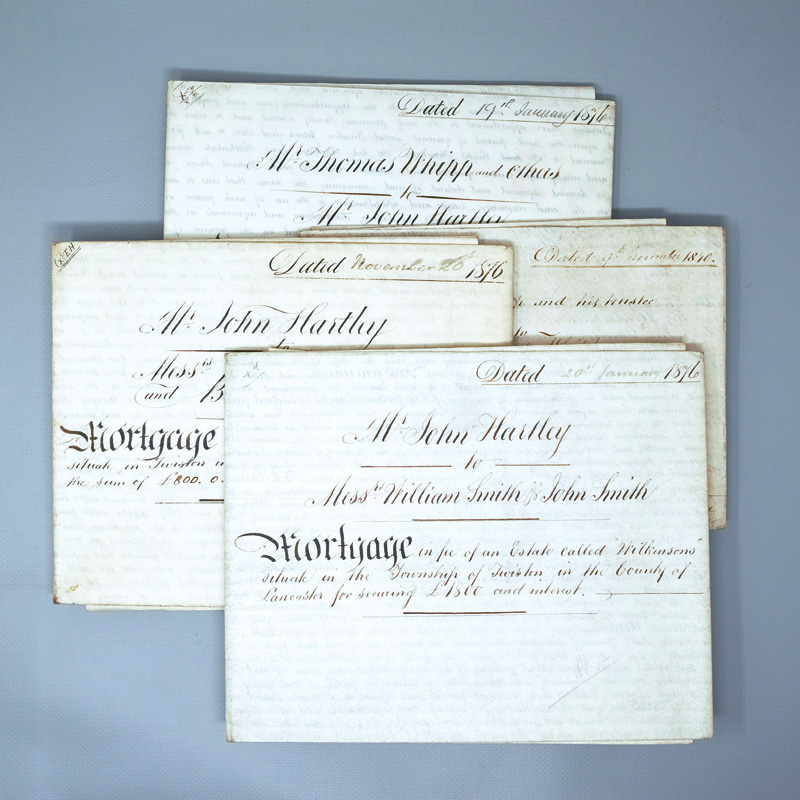 Dated 19th January 1876
Mr. Thomas Whipp and others
to
Mr. John Hartley
Dated November 20th 1876
Mr. John Hartley
to
Messrs
and B
Mortgage
situate in Twiston in
the sum of £800. 0.
Dated 1840.
and his trustee
to
Dated 20th January 1876
Mr. John Hartley
to
Messrs William Smith & John Smith
Mortgage in fee of an Estate called Wilkinsons
situate in the Township of Twiston in the County of
Lancaster for securing £1800 and interest.